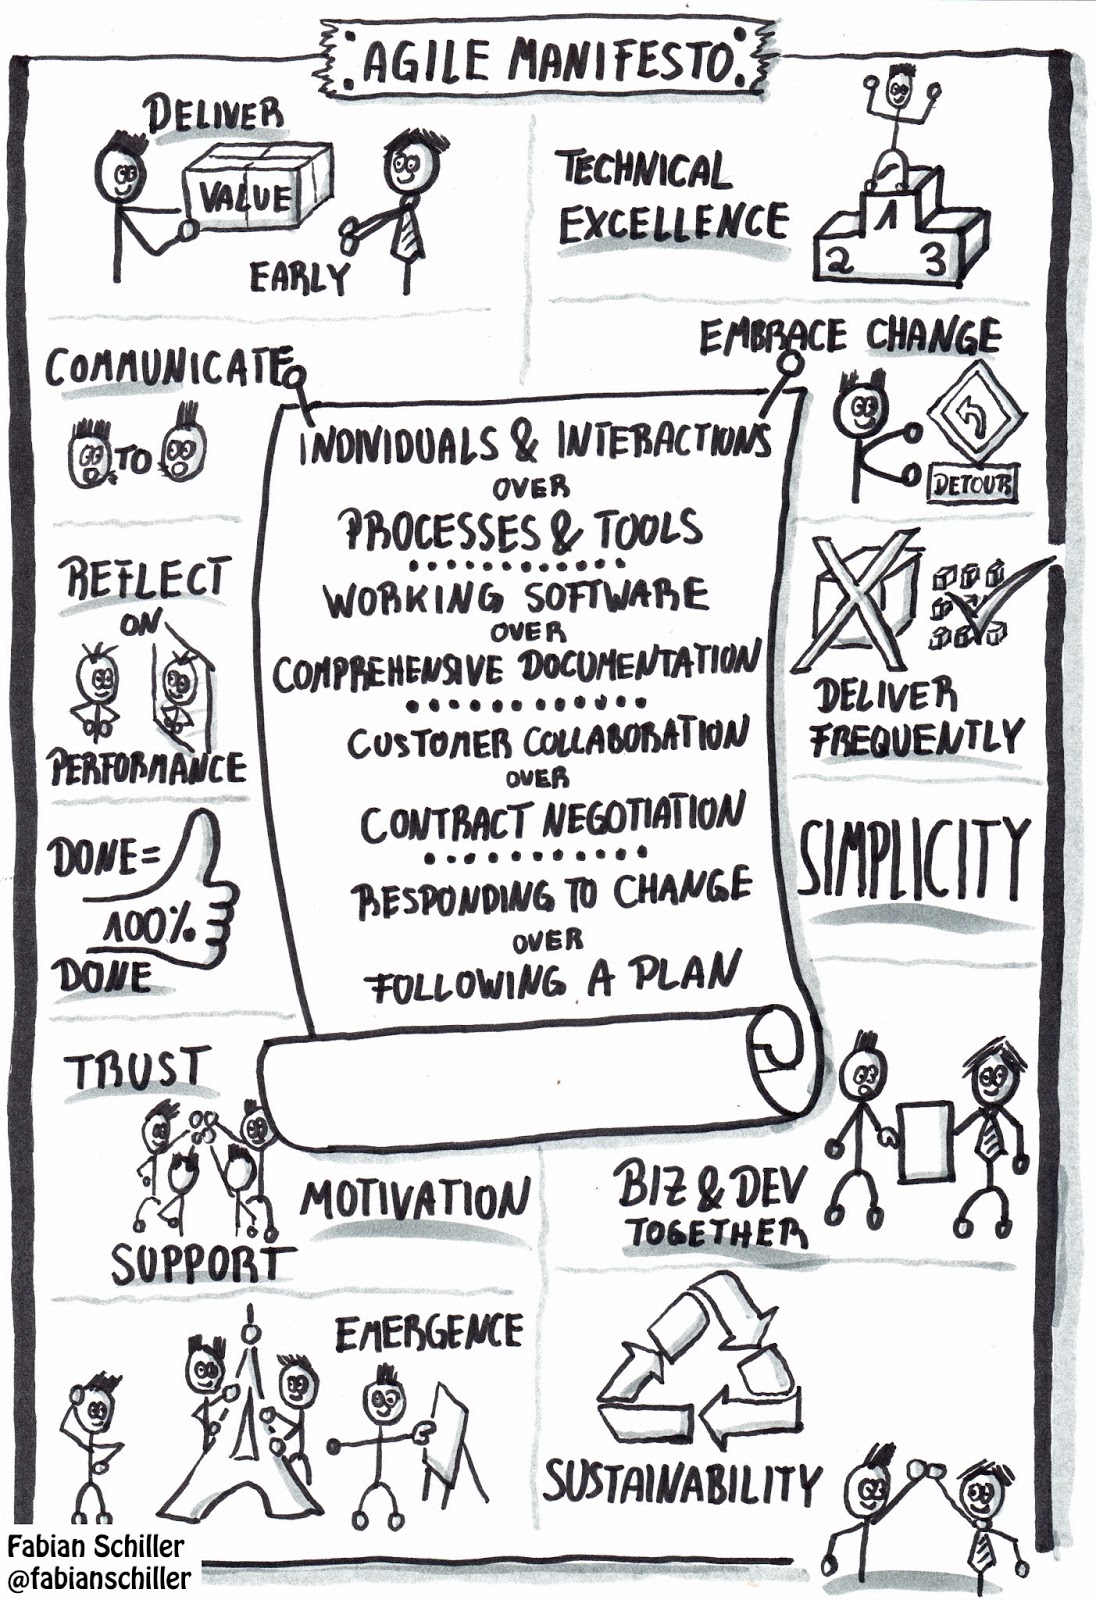 AGILE MANIFESTO
DELIVER
VALUE
EARLY
TECHNICAL
EXCELLENCE
1
2
3
COMMUNICATE
TO
EMBRACE CHANGE
DETOUR
INDIVIDUALS & INTERACTIONS
OVER
PROCESSES & TOOLS
WORKING SOFTWARE
OVER
COMPREHENSIVE DOCUMENTATION
CUSTOMER COLLABORATION
OVER
CONTRACT NEGOTIATION
RESPONDING TO CHANGE
OVER
FOLLOWING A PLAN
REFLECT
ON
PERFORMANCE
DELIVER
FREQUENTLY
DONE=
100%
DONE
SIMPLICITY
TRUST
MOTIVATION
SUPPORT
BIZ & DEV
TOGETHER
EMERGENCE
SUSTAINABILITY
Fabian Schiller
@fabianschiller